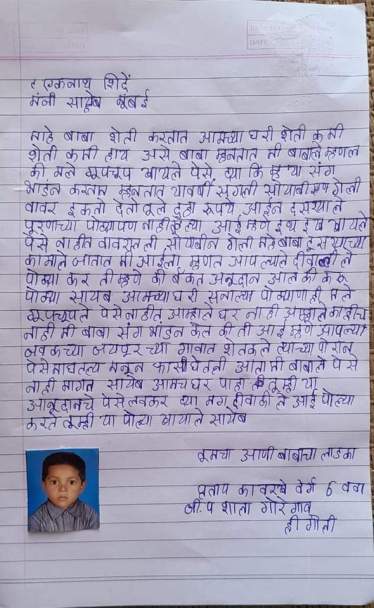 एकनाथ शिदें
मंत्री साहेब मुंबई
माहे बाबा शेती करतात आमच्या घरी शेती कमी
शेती कमी हाय असे बाबा म्हनतात मी बाबाले म्हणल
की मले गुपचूप खायले पैसे द्या कि मह्या संग
भांडन करतात म्हनतात यावर्षी सगळी सोयाबीन गेली
वावर इकतो देतो तूले दहा रूपये आईन दसऱ्याले
पूरणाच्या पोळ्यापण नाही केल्या आई म्हणे इथ इख खायले
पैसे नाहीत वावरातली सोयाबीन गेली माहे बाबा दुसऱ्याच्या
कामाले जातात मी आईला म्हणल आपल्याले दीवाळीले
पोळ्या कर ती म्हणे की बॅंकेत अनूदान आल की करू
पोळ्या सायब आमच्या घरी सनाल्या पोळ्या नाही मले
गुपचूपले पैसे नाहीत आम्हाले घर नाही आम्हाले काहीच
नाही मी बाबा संग भांडन केल की ती आई म्हणे आपल्या
जवळच्या जयपूरच्या गावात शेतकले त्याच्या पोरान
पैसे मांगतल्या मनून फाशी घेतली आता मी बाबाले पैसे
नाही मांगत सायेब आमचं घर पाहा तूम्ही या
आनूदानचे पैसे लवकर द्या मग दीवाळीले आई पोळ्या
करते तूम्ही या पोळ्या खायाले सायेब
तूमचा आणी बाबाचा लाडका
प्रताप कावरखे वर्ग 6 ववा
जी.प शाळा गोरेगाव
ही गोली